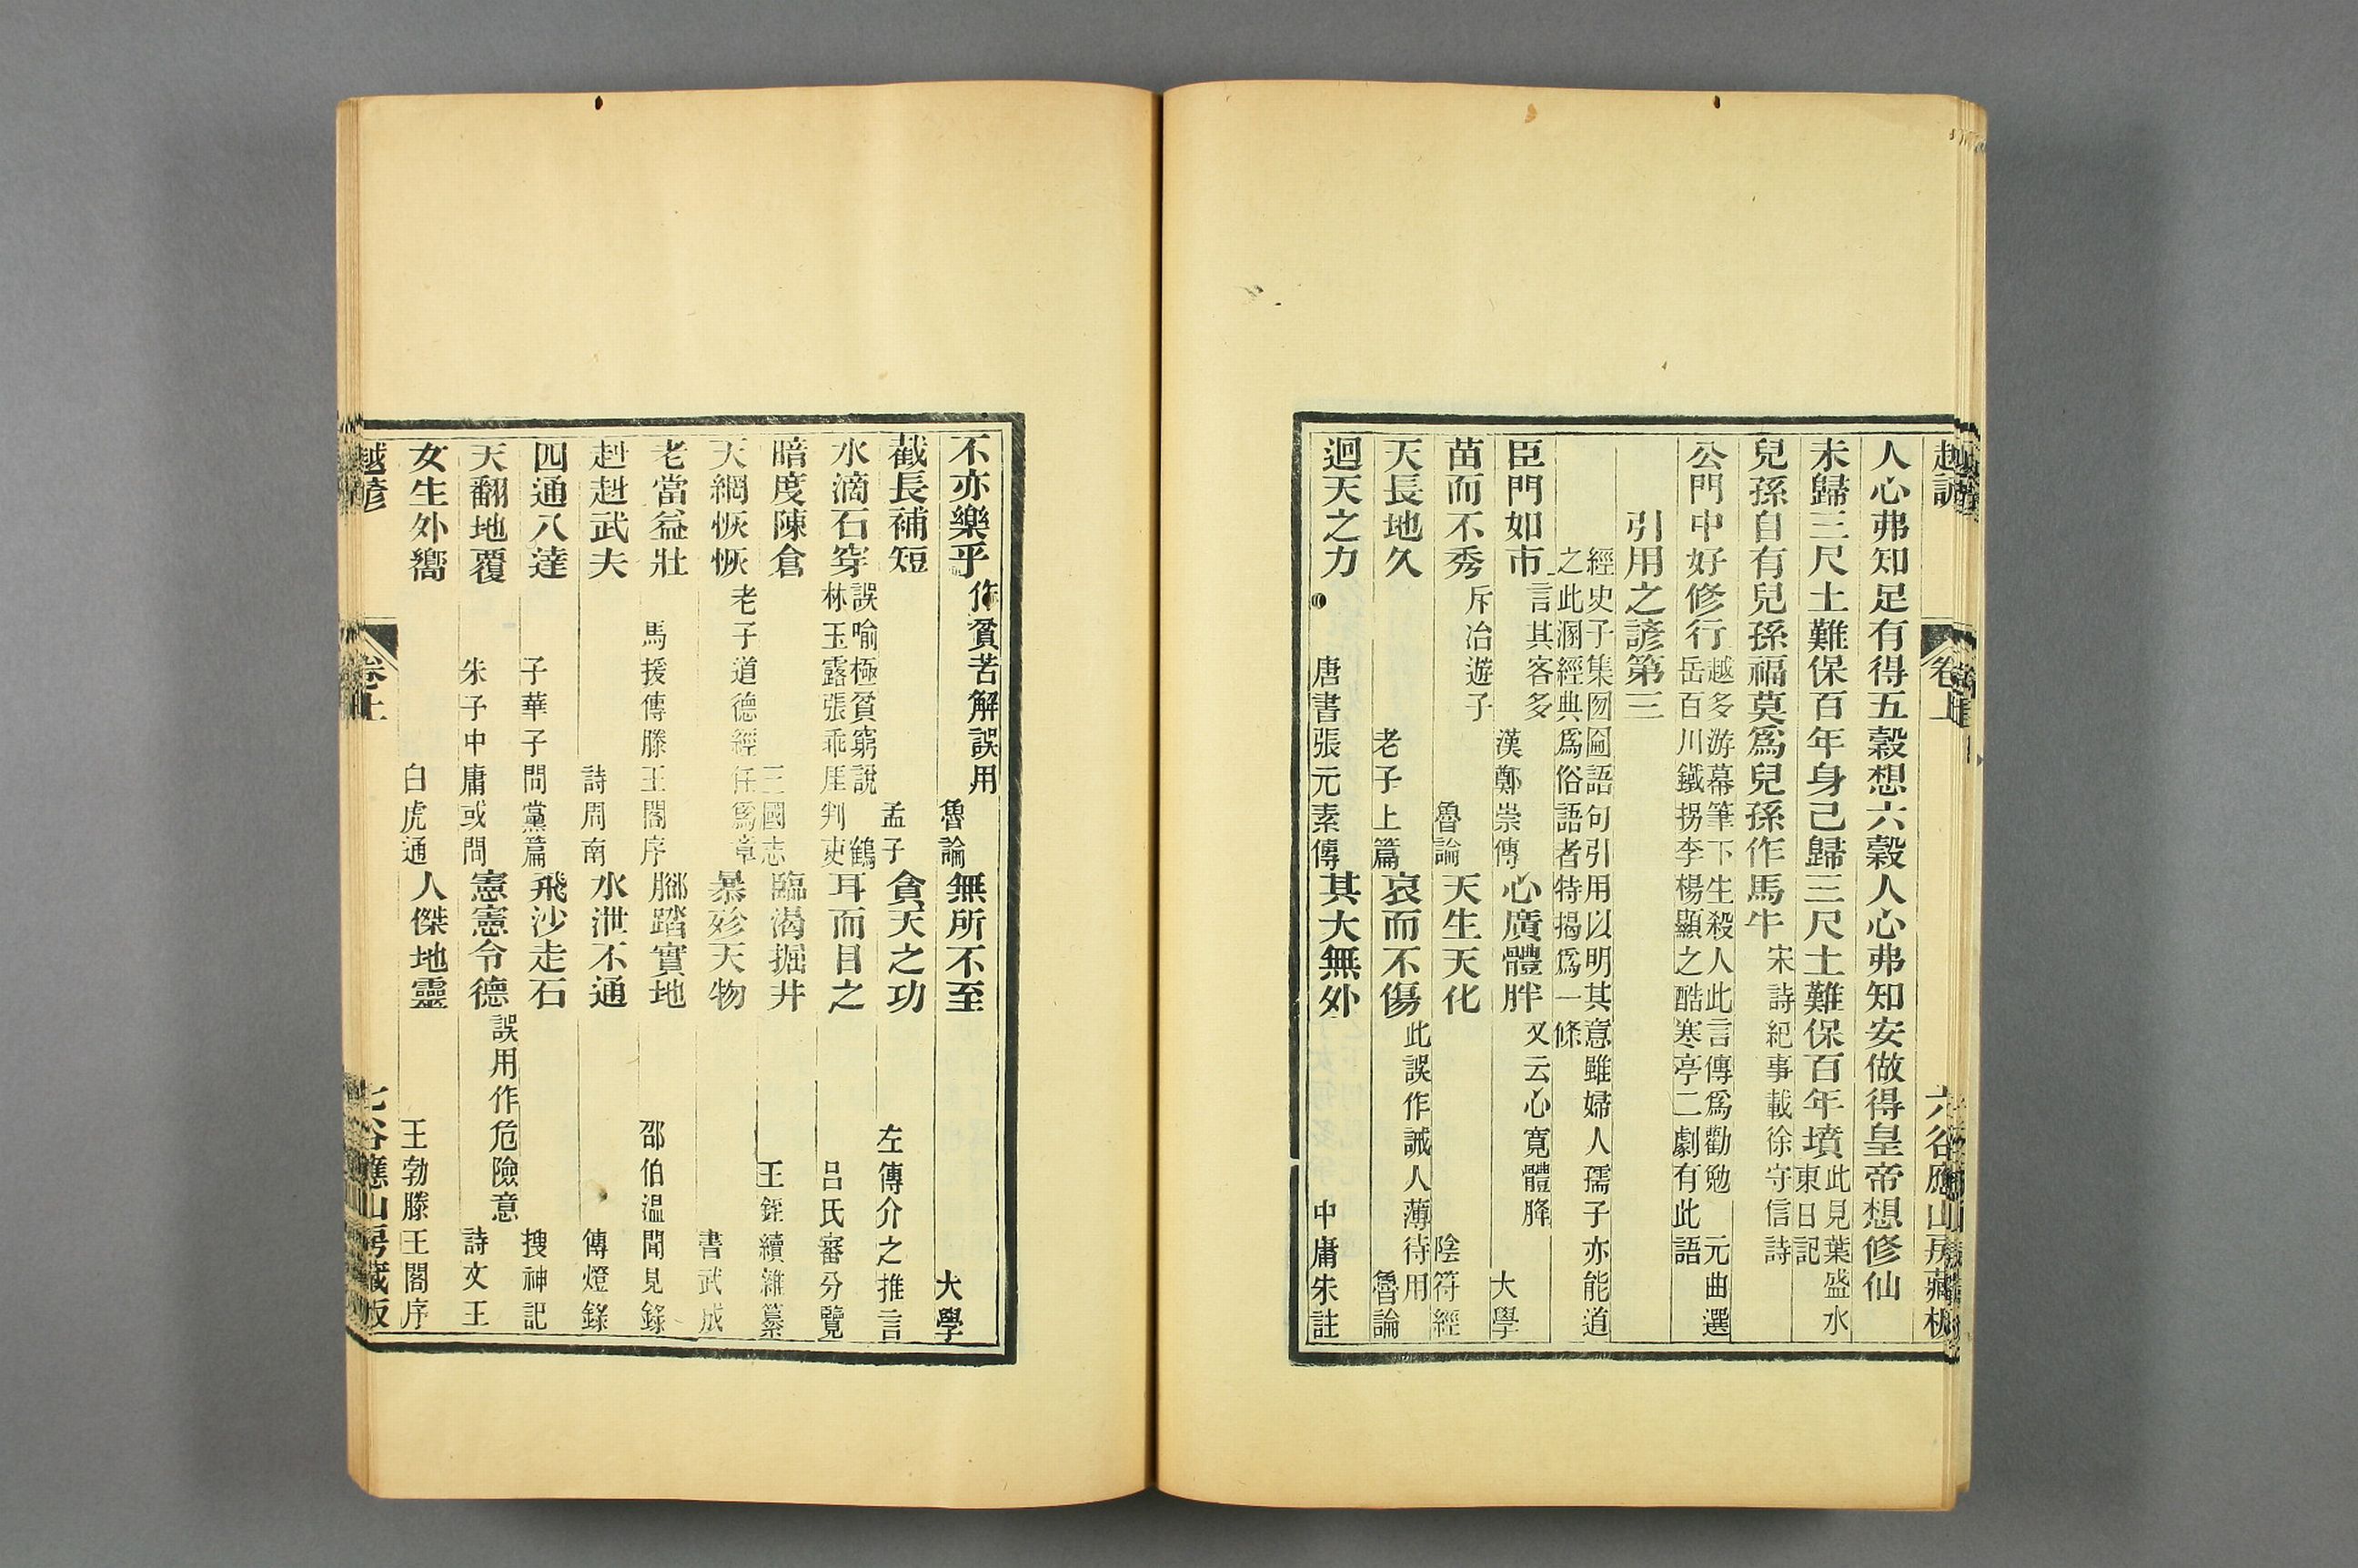 越諺 卷上 六 谷應山房藏板
人心弗知足有得五穀想六穀人心弗知安做得皇帝想修仙
未歸三尺土難保百年身已歸三尺土難保百年墳 此見葉盛水東日記
兒孫自有兒孫福莫爲兒孫作馬牛 宋詩紀事載徐守信詩
公門中好修行 越多游幕筆下生殺人此言傳爲勸勉 元曲選岳百川鐵拐李楊顯之酷寒亭二劇有此語
引用之諺第三
經史子集囫圇語句引用以明其意雖婦人孺子亦能道
之此溷經典爲俗語者特揭爲一條
臣門如市 言其客多 漢鄭崇傳 心廣體胖 又云心寬體胮 大學
苗而不秀 斥冶遊子 魯論 天生天化 陰符經
天長地久 老子上篇 哀而不傷 此誤作誡人薄待用 魯論
迴天之力 唐書張元素傳 其大無外 中庸朱註
不亦樂乎 作貧苦解誤用 魯論 無所不至 大學
截長補短 孟子 貪天之功 左傳介之推言
水滴石穿 誤喻極貧窮說 鶴林玉露張乖厓判吏 耳而目之 呂氏審分覽
暗度陳倉 三國志 臨渴掘井 王銍續雜纂
天網恢恢 老子道德經任爲章 暴殄天物 書武成
老當益壯 馬援傳滕王閣序 腳踏實地 邵伯溫聞見錄
赳赳武夫 詩周南 水泄不通 傳燈錄
四通八達 子華子問黨篇 飛沙走石 搜神記
天翻地覆 朱子中庸或問 憲憲令德 誤用作危險意 詩文王
女生外嚮 白虎通 人傑地靈 王勃滕王閣序
越諺 卷上 七 谷應山房藏板